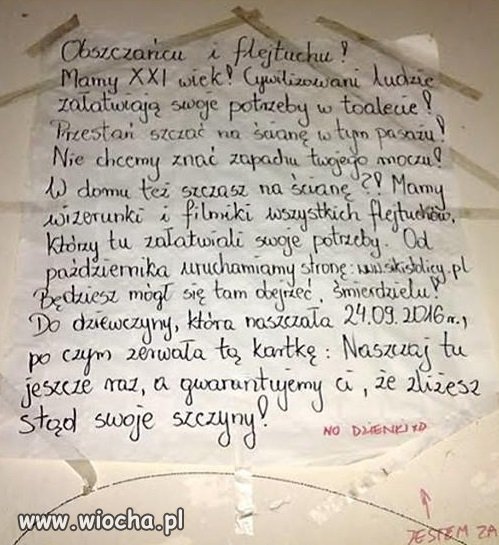 Obszczańcu i flejtuchu!
Mamy XXI wiek! Cywilizowani ludzie
załatwiają swoje potrzeby w toalecie!
Przestań szczać na ścianę w tym pasażu!
Nie chcemy znać zapachu twojego moczu!
W domu też szczasz na ścianę?! Mamy
wizerunki i filmiki wszystkich flejtuchów,
którzy tu załatwiali swoje potrzeby. Od
października uruchamiamy stronę:
Będziesz mógł się tam obejrzeć, śmierdzielu!
Do dziewczyny, która naszczała 24.09.2016r.,
po czym zerwała tą kartkę: Naszczaj tu
jeszcze raz, a gwarantujemy ci, że zliżesz
stąd swoje szczyny!
NO DZIENKI XD
JESTEM ZA
www.wiocha.pl